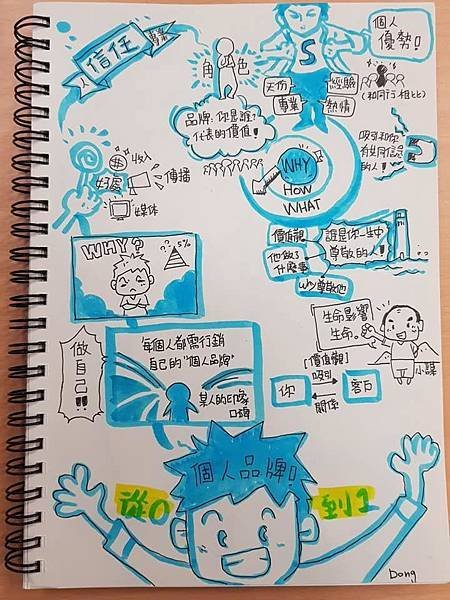 信任
專業
人
角色
品牌,你是誰?
代表的價值!
S
個人
優勢!
天份
經驗
專業
熱情
(和同行相比)
好處
$
收入
傳播
媒体
WHY
HOW
WHAT
吸引和你
有共同信念
的人!
價值觀
誰是你一生中
尊敬的人!
他做了
什麼事
WHY尊敬他
WHY?
??
5%
做自己!!
每個人都需行銷
自己的"個人品牌"
某人的印象
口頭
生命影響
生命。
小謀
[價值觀]
你
吸引
客戶
關係
個人品牌!
從0
到1
Dong